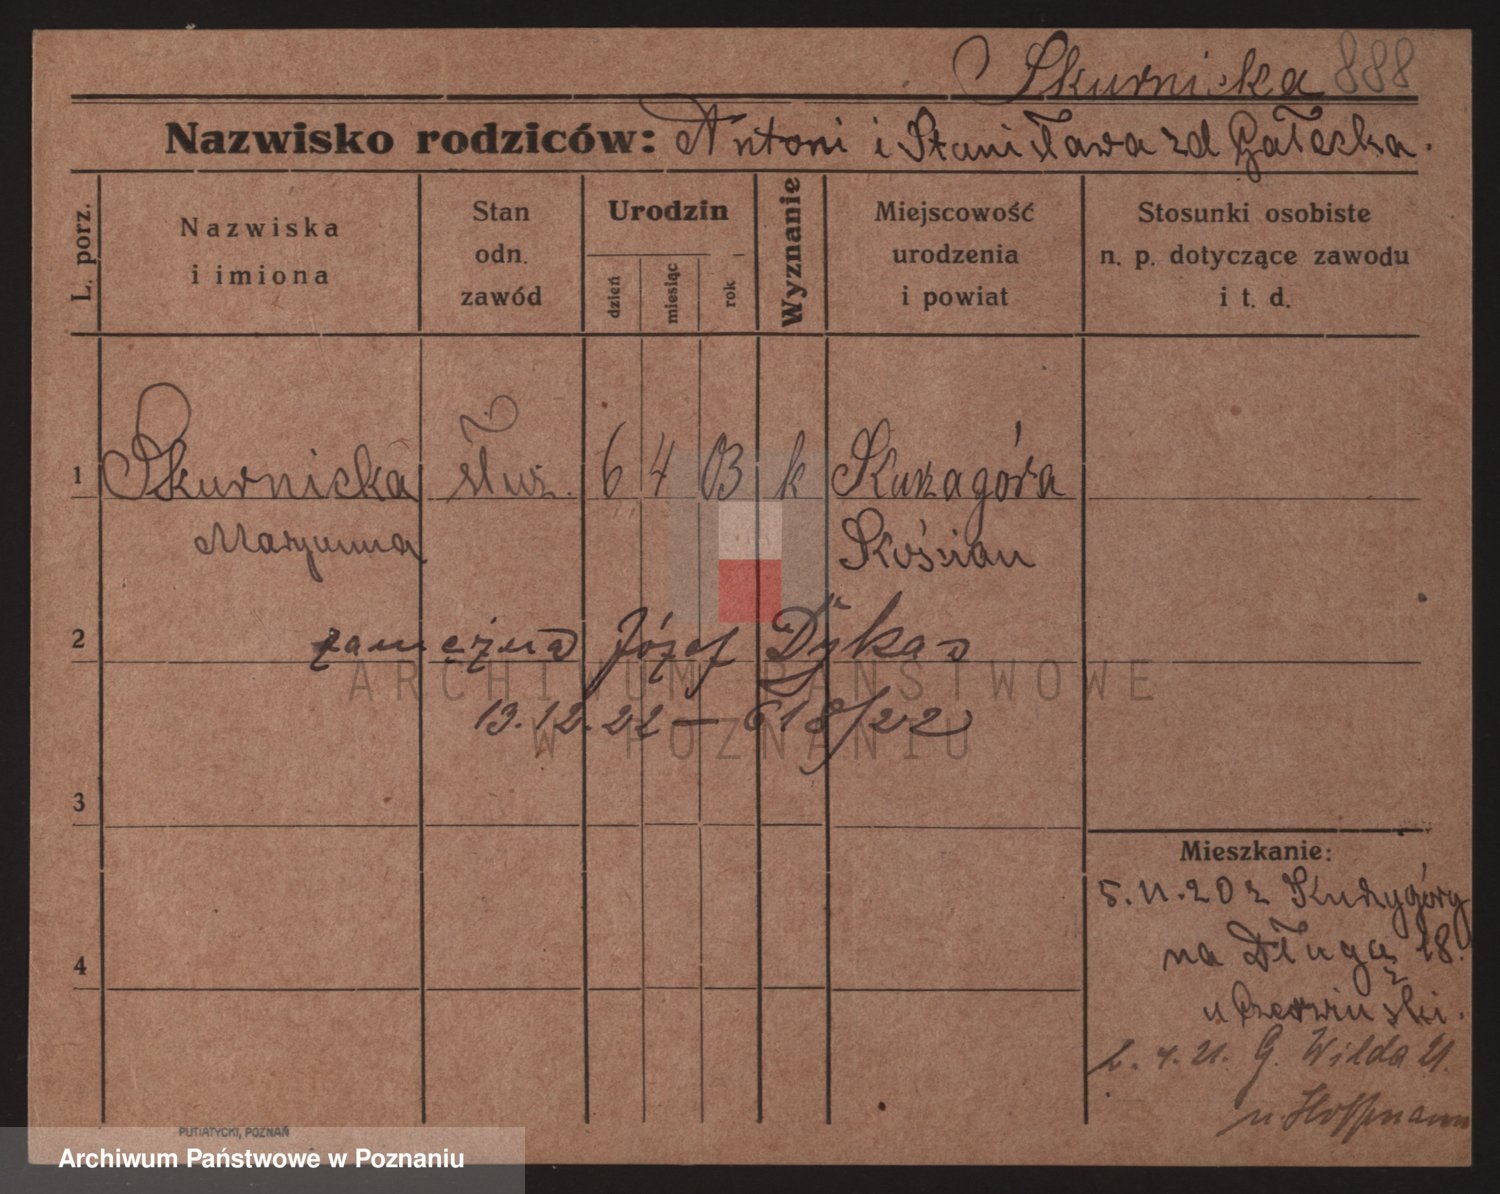 Skurnicka 888
Nazwisko rodziców: Antoni i Stanisława zd Gałecka.
L. porz.
Nazwiska
i imiona
Stan
odn.
zawód
Urodzin
dzień
miesiąc
rok
Wyznanie
Miejscowość
urodzenia
i powiat
Stosunki osobiste
n. p. dotyczące zawodu
i t. d.
1 Skurnicka służ. 6 4 03 k Kurzagóra
Maryanna Kościan
2 zamężna Józef Dykas
13.12.22 — 618/22
3
4
Mieszkanie:
5.11.20 z Kurzygóry
na Długą 18.
u Czerwińskiej.
2. 4. 21. G. Wilda 21.
u Hoffmann
PUTIATYCKI, POZNAŃ
ARCHIWUM PAŃSTWOWE
W POZNANIU
Archiwum Państwowe w Poznaniu